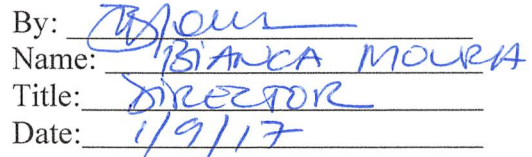 By:
Name: BIANCA MOURA
Title: DIRECTOR
Date: 1/9/17